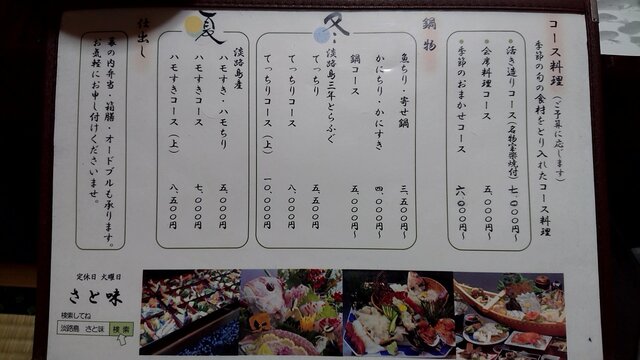 コース料理
(ご予算に応じます)
季節の旬の食材をとり入れたコース料理
・活き造りコース(名物宝楽焼付) 七、〇〇〇円〜
・会席料理コース 五、〇〇〇円〜
・季節のおまかせコース 六、〇〇〇円〜
鍋物
冬
魚ちり・寄せ鍋 三、五〇〇円〜
かにちり・かにすき 四、〇〇〇円〜
鍋コース 五、〇〇〇円〜
淡路島三年とらふぐ
てっちり 五、五〇〇円
てっちりコース 八、〇〇〇円
てっちりコース(上) 一〇、〇〇〇円
夏
淡路島産
ハモすき・ハモちり 五、〇〇〇円
ハモすきコース 七、〇〇〇円
ハモすきコース(上) 八、五〇〇円
仕出し
幕の内弁当・箱膳・オードブルも承ります。
お気軽にお申し付けくださいませ。
定休日 火曜日
さと味
検索してね
淡路島 さと味 検索